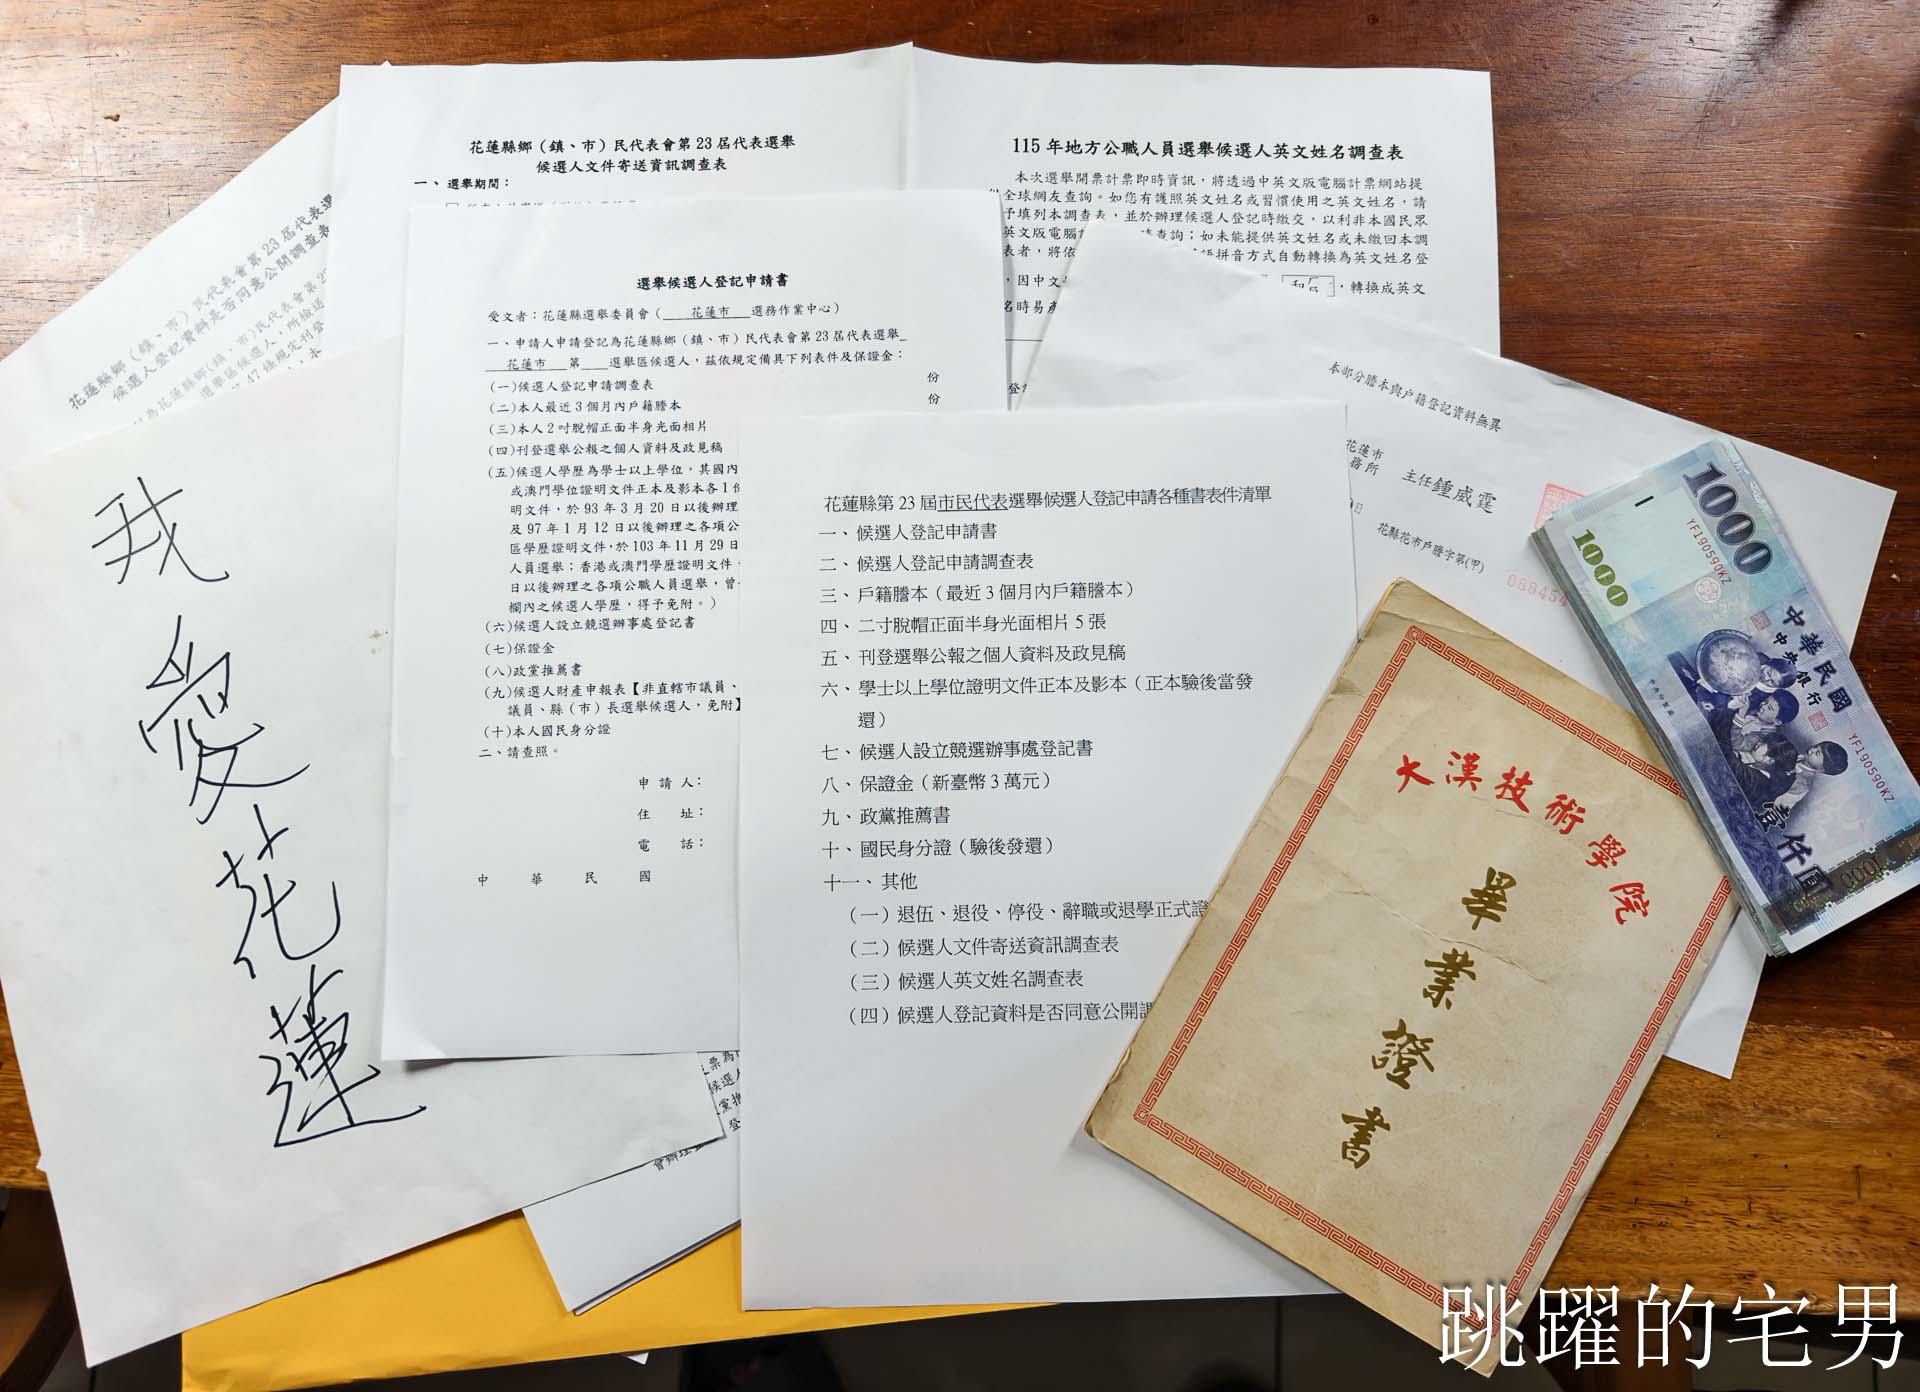 花蓮縣鄉（鎮、市）民代表會第23屆代表選舉
候選人文件寄送資訊調查表
一、選舉期間：
115年地方公職人員選舉候選人英文姓名調查表
本次選舉開票計票即時資訊，將透過中英文版電腦計票網站提
全球網友查詢。如您有護照英文姓名或習慣使用之英文姓名，請
予填列本調查表，並於辦理候選人登記時繳交，以利非本國民眾
英文版電腦
查詢；如未能提供英文姓名或未繳回本調
表者，將依
拼音方式自動轉換為英文姓名登
，因中文
，轉換成英文
名時易產
花蓮縣鄉（鎮、市）民代表會第23屆代表選
候選人登記資料是否同意公開調查表
選舉候選人登記申請書
受文者：花蓮縣選舉委員會（ 花蓮市 選務作業中心）
一、申請人申請登記為花蓮縣鄉（鎮、市）民代表會第23屆代表選舉
花蓮市 第 選舉區候選人，茲依規定備具下列表件及保證金：
（一）候選人登記申請調查表 份
（二）本人最近3個月內戶籍謄本 份
（三）本人2吋脫帽正面半身光面相片
（四）刊登選舉公報之個人資料及政見稿
（五）候選人學歷為學士以上學位，其國內
或澳門學位證明文件正本及影本各1份
明文件，於93年3月20日以後辦理
及97年1月12日以後辦理之各項公
區學歷證明文件，於103年11月29日
人員選舉；香港或澳門學歷證明文件，
日以後辦理之各項公職人員選舉，曾
欄內之候選人學歷，得予免附。）
（六）候選人設立競選辦事處登記書
（七）保證金
（八）政黨推薦書
（九）候選人財產申報表【非直轄市議員、
議員、縣（市）長選舉候選人，免附】
（十）本人國民身分證
二、請查照。
申請人：
住址：
電話：
中華民國
花蓮縣第23屆市民代表選舉候選人登記申請各種書表件清單
一、候選人登記申請書
二、候選人登記申請調查表
三、戶籍謄本（最近3個月內戶籍謄本）
四、二寸脫帽正面半身光面相片5張
五、刊登選舉公報之個人資料及政見稿
六、學士以上學位證明文件正本及影本（正本驗後當發
還）
七、候選人設立競選辦事處登記書
八、保證金（新臺幣3萬元）
九、政黨推薦書
十、國民身分證（驗後發還）
十一、其他
（一）退伍、退役、停役、辭職或退學正式證
（二）候選人文件寄送資訊調查表
（三）候選人英文姓名調查表
（四）候選人登記資料是否同意公開調
我愛花蓮
本部分謄本與戶籍登記資料無異
花蓮市
務所 主任鍾威霆
日 花縣花市戶謄字第(甲)
088454
大漢技術學院
畢業證書
1000
1000
YF190590KZ
中華民國
中央銀行
YF190590KZ
壹仟圓
1000
跳躍的宅男